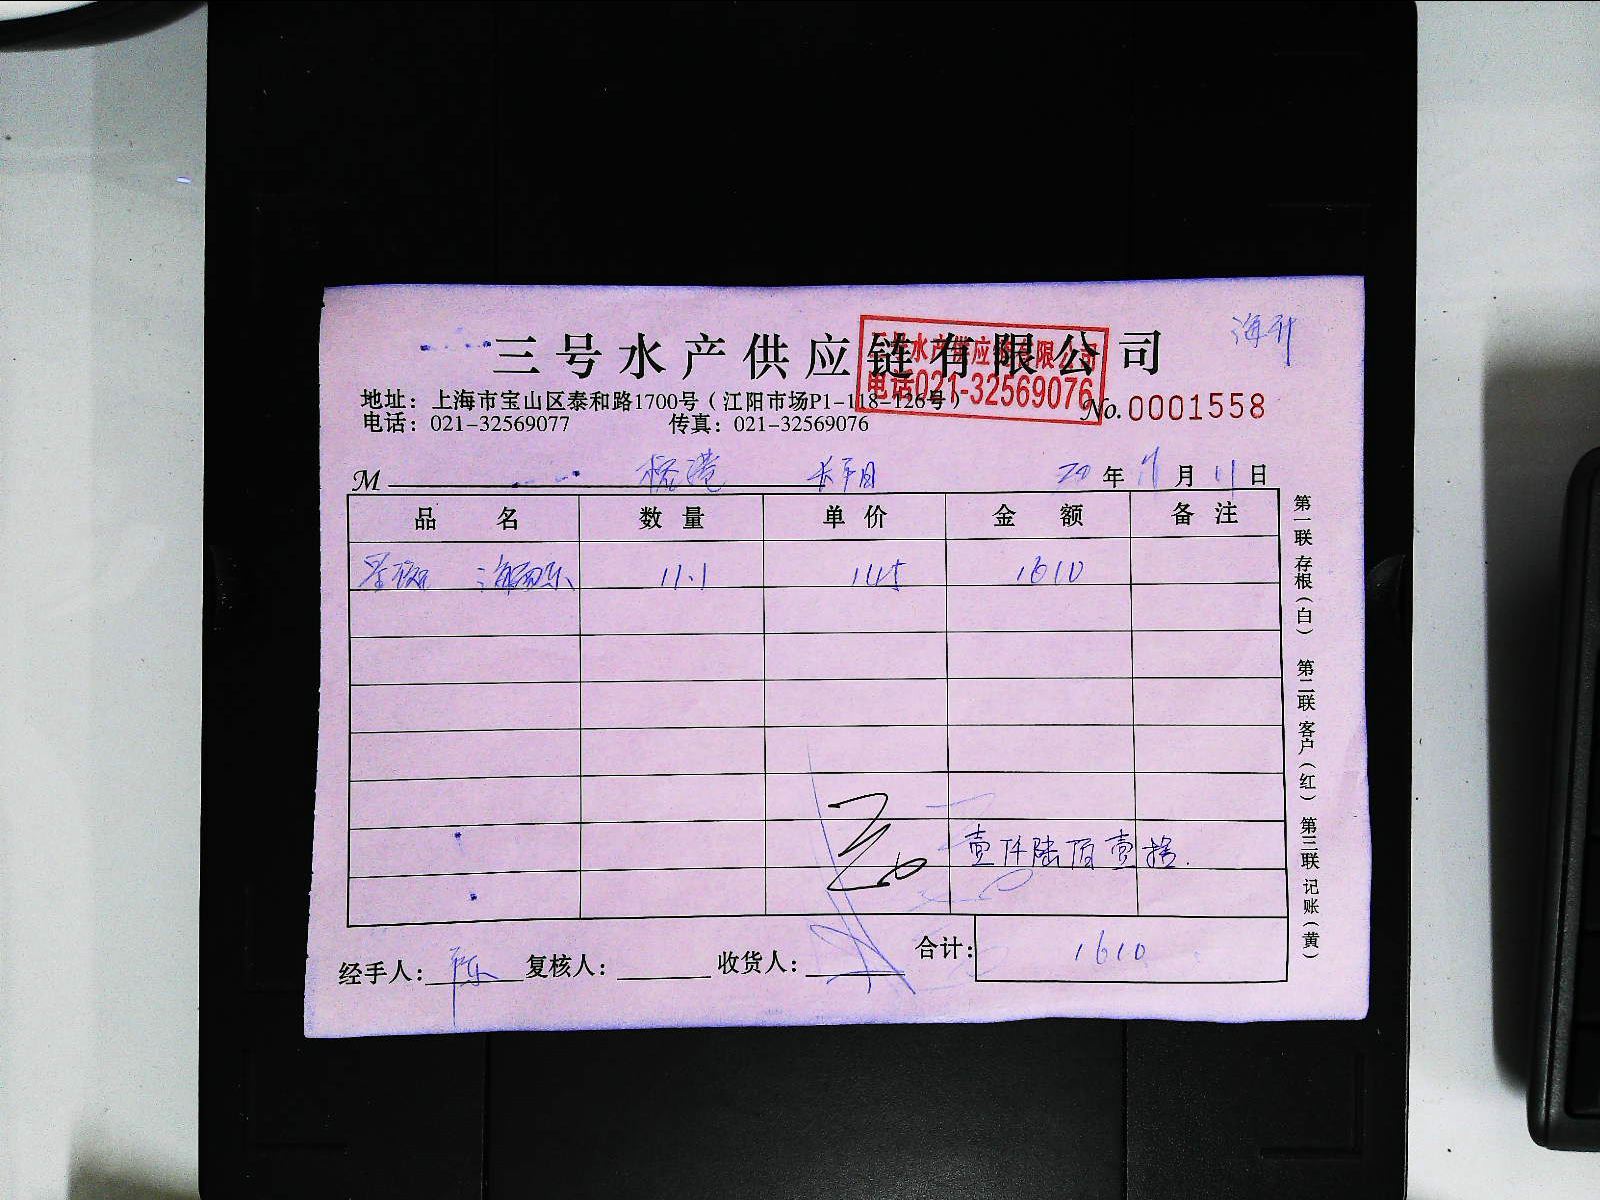 海升
三号水产供应链有限公司
三号水产供应链有限公司
电话021-32569076
地址：上海市宝山区泰和路1700号（江阳市场P1-118-126号）
No.0001558
电话：021-32569077 传真：021-32569076
M 20年11月11日
品名 数量 单价 金额 备注
11.1 145 1610
壹仟陆佰壹拾.
经手人： 复核人： 收货人： 合计： 1610
第一联 存根（白） 第二联 客户（红） 第三联 记账（黄）